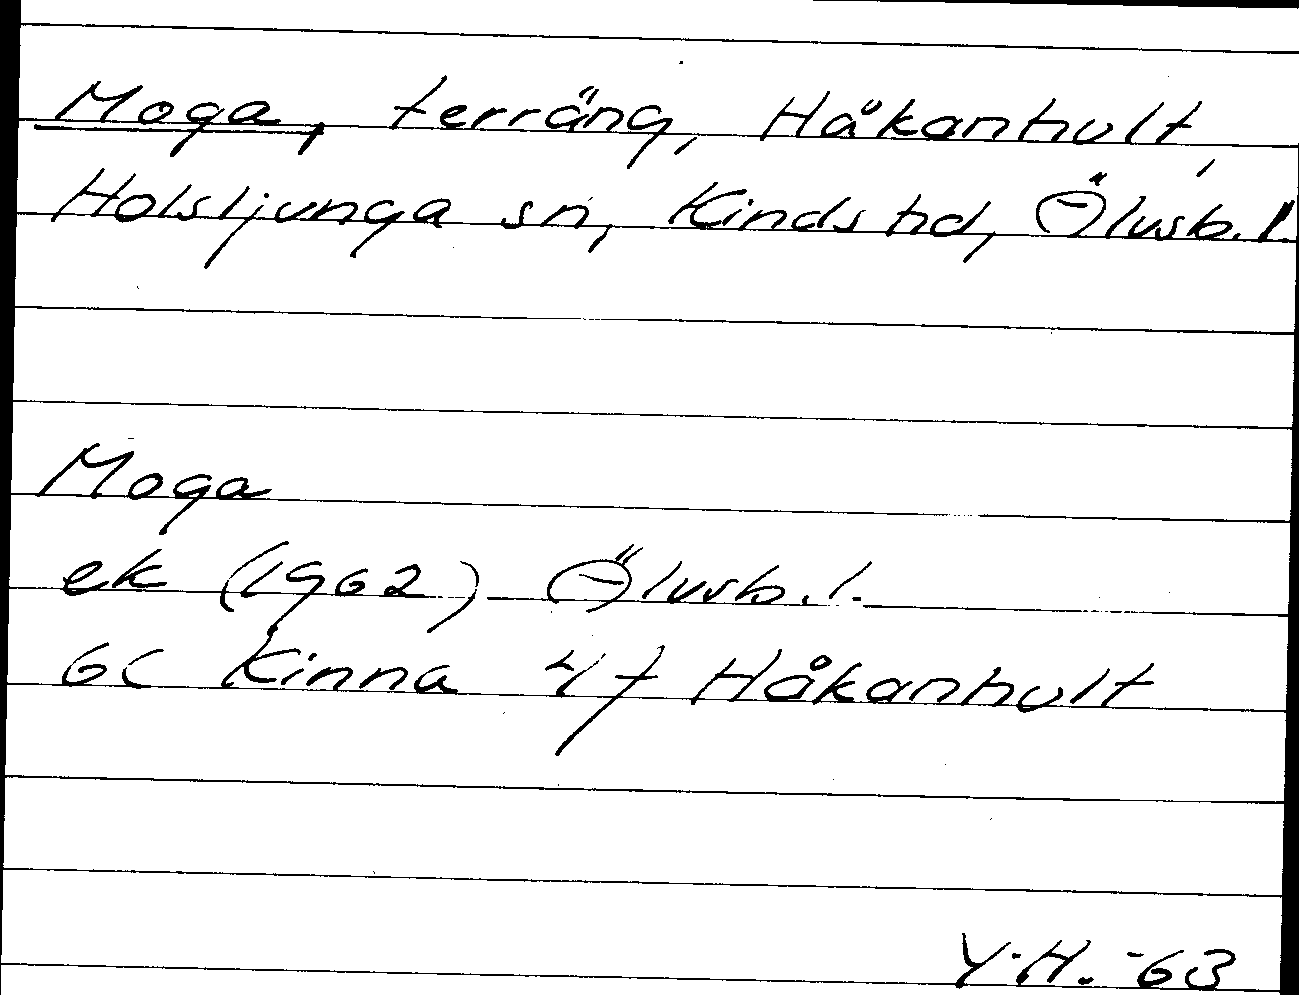 Moga, terräng, Håkanhult,
Holsljunga sn, Kinds hd, Älvsb. l.
Moga
ek (1962) Älvsb. l.
6C Kinna 4f Håkanhult
Y.H. -63